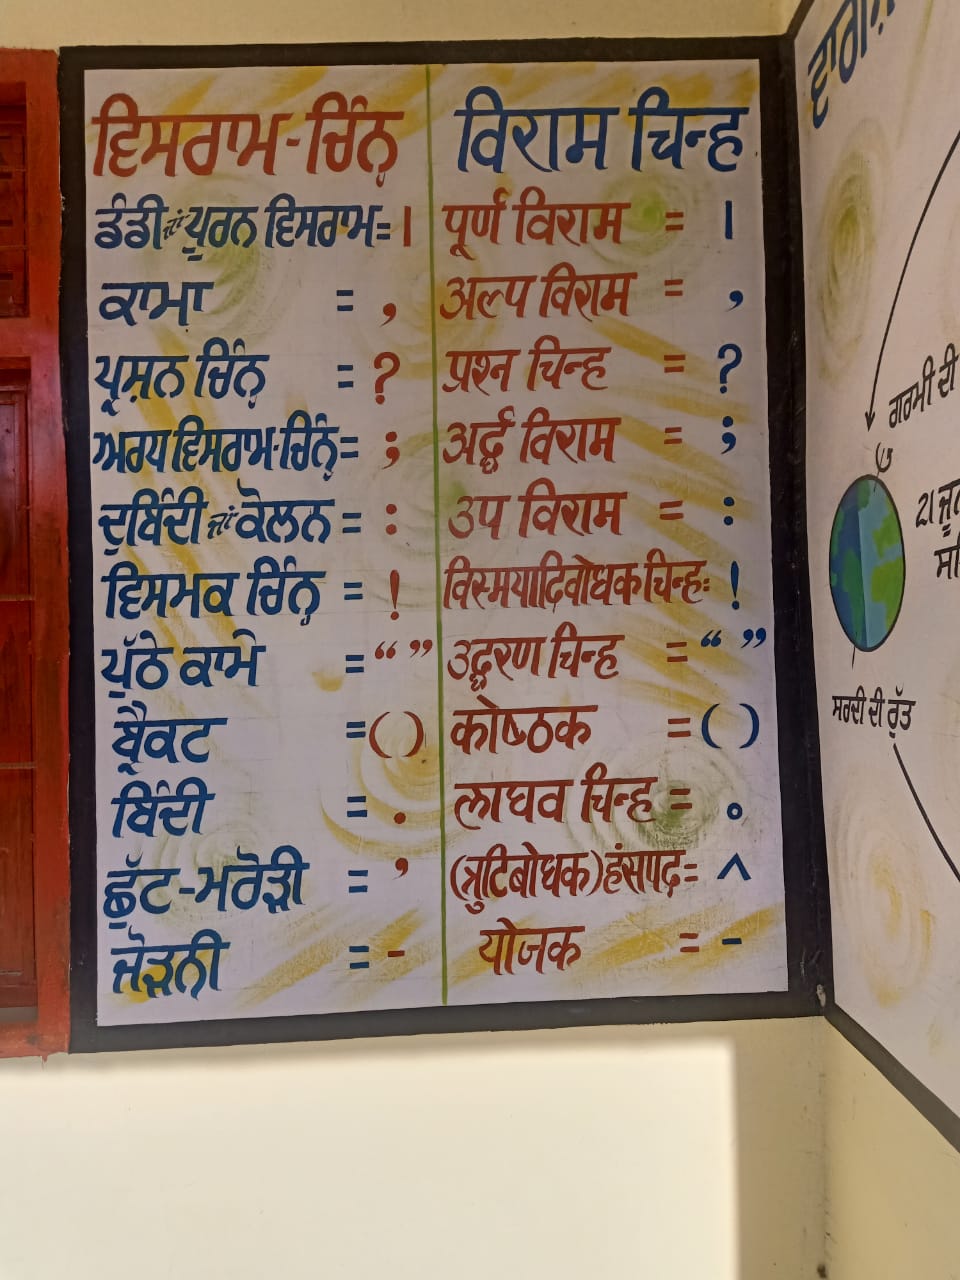 ਵਿਸਰਾਮ-ਚਿੰਨ੍ਹ
ਡੰਡੀ ਜਾਂ ਪੂਰਨ ਵਿਸਰਾਮ = ।
ਕਾਮਾ = ,
ਪ੍ਰਸ਼ਨ ਚਿੰਨ੍ਹ = ?
ਅਰਧ ਵਿਸਰਾਮ-ਚਿੰਨ੍ਹ = ;
ਦੁਬਿੰਦੀ ਜਾਂ ਕੋਲਨ = :
ਵਿਸਮਕ ਚਿੰਨ੍ਹ = !
ਪੁੱਠੇ ਕਾਮੇ = “ ”
ਬ੍ਰੈਕਟ = ( )
ਬਿੰਦੀ = .
ਛੁੱਟ-ਮਰੋੜੀ = ’
ਜੋੜਨੀ = -
विराम चिन्ह
पूर्ण विराम = ।
अल्प विराम = ,
प्रश्न चिन्ह = ?
अर्द्ध विराम = ;
उप विराम = :
विस्मयादिबोधक चिन्ह = !
उद्धरण चिन्ह = “ ”
कोष्ठक = ( )
लाघव चिन्ह = ०
(त्रुटिबोधक) हंसपद = ^
योजक = -
ਗਰਮੀ ਦੀ
21 ਜੂਨ
ਸਰਦੀ ਦੀ ਰੁੱਤ